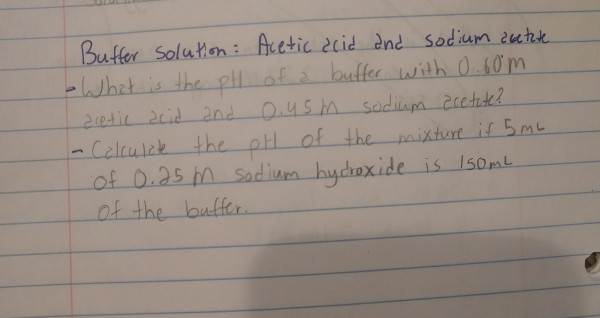 Buffer Solution: Acetic acid and sodium acetate
- What is the pH of a buffer with 0.60 M
acetic acid and 0.45 M sodium acetate?
- Calculate the pH of the mixture if 5 mL
of 0.25 M sodium hydroxide is 150 mL
of the buffer.